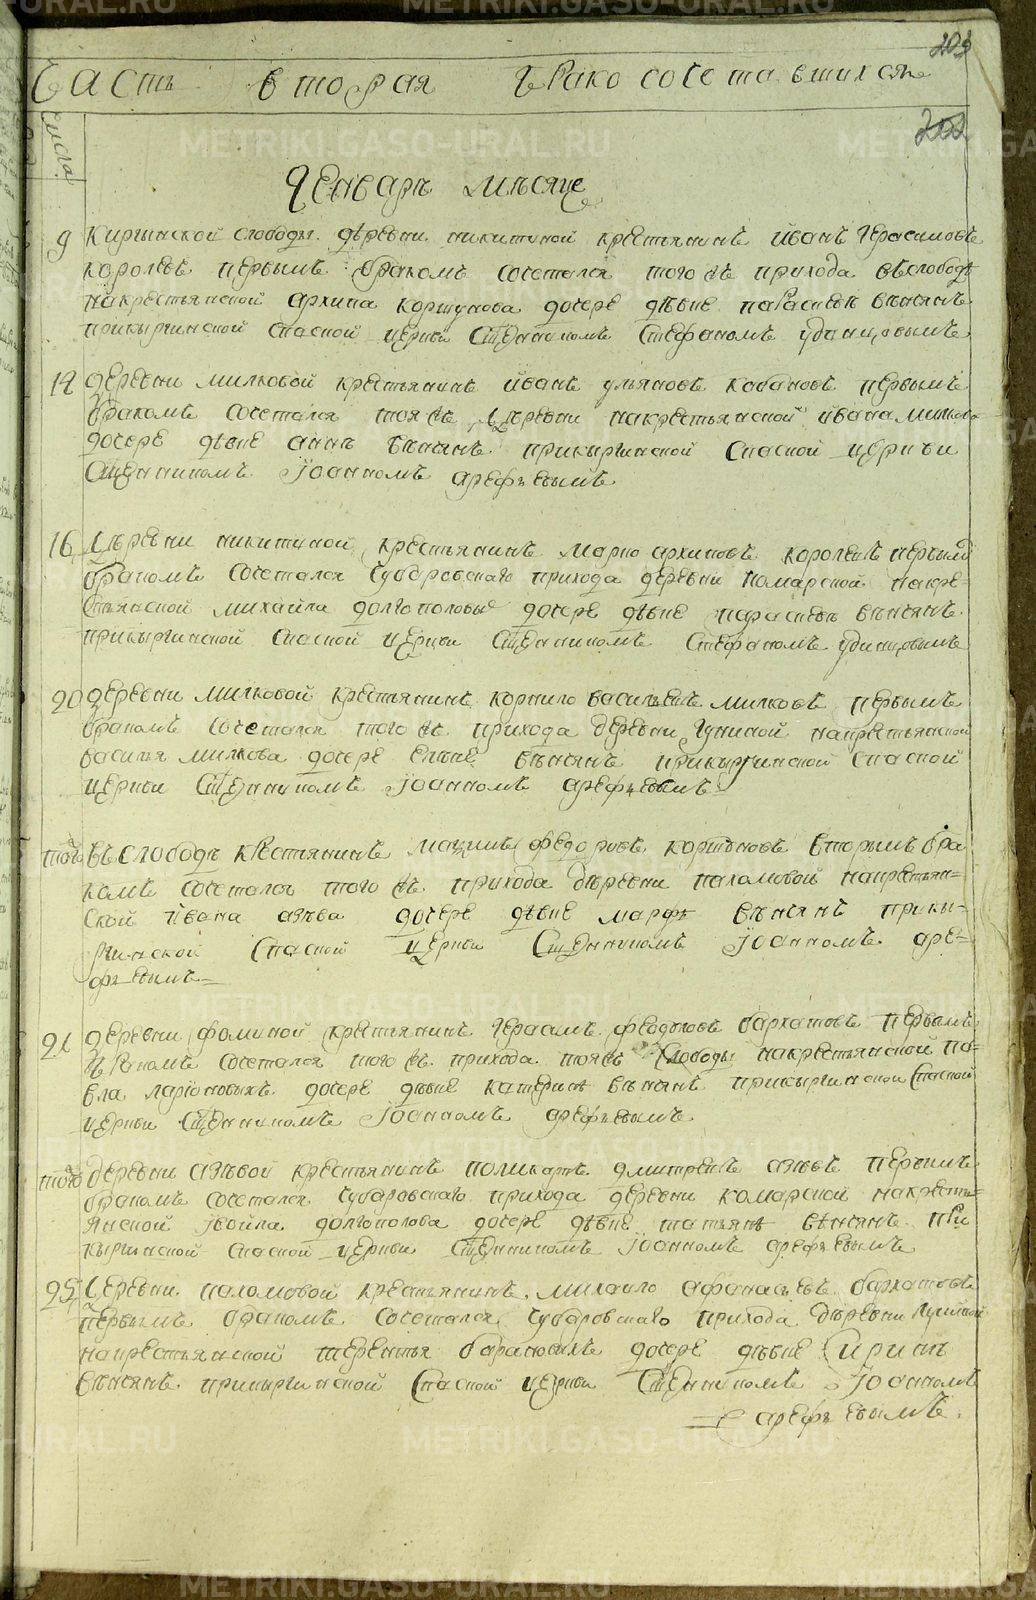 203
Часть вторая бракосочетавшихся
202
числа
Генварь мѣсяцъ
9 Киргинской слободы деревни никитиной крестьянинъ Иванъ Герасимовъ
королевъ первымъ бракомъ сочетался того же прихода въ слободѣ
на крестьянской архипа коршунова дочере дѣвке параскеве вѣнчанъ
при киргинской спасской церкви священникомъ Стефаномъ удинцовымъ
14 деревни милковой крестьянинъ Иванъ ульяновъ кабановъ первымъ
бракомъ сочетался тояже деревни на крестьянской Ивана милкова
дочере дѣвке аннѣ вѣнчанъ при киргинской спасской церкви
священникомъ Иоанномъ арефьевымъ
16 деревни никитиной крестьянинъ марко архиповъ королевъ первымъ
бракомъ сочетался Чубаровскаго прихода деревни комарской на кре-
стьянской михайла долгополовыхъ дочере дѣвке параскевѣ вѣнчанъ
при киргинской спасской церкви священникомъ Стефаномъ удинцовымъ
20 деревни милковой крестьянинъ корнило васильевъ милковъ первымъ
бракомъ сочетался того же прихода деревни Гуниной на крестьянской
василья милкова дочере еленѣ вѣнчанъ при киргинской спасской
церкви священникомъ Иоанномъ арефьевымъ
того въ слободѣ крестьянинъ максимъ федоровъ коршуновъ вторымъ бра
комъ сочетался того же прихода деревни пахомовой на крестьян-
ской Ивана азѣва дочере дѣвке марфѣ вѣнчанъ при кир-
гинской спасской церкви священникомъ Иоанномъ аре-
фьевымъ
21 деревни фоминой крестьянинъ Герасимъ феодотовъ бархатовъ первымъ
бракомъ сочетался того же прихода тояже слободы на крестьянской па-
вла ларионовыхъ дочере дѣвке катеринѣ вѣнчанъ при киргинской спасской
церкви священникомъ Иоанномъ арефьевымъ
того деревни азѣвой крестьянинъ поликарпъ дмитревъ азѣвъ первымъ
бракомъ сочетался Чубаровскаго прихода деревни комарской на крестъ-
янской долгополова дочере дѣвке татьянѣ вѣнчанъ при
киргинской спасской церкви священникомъ Иоанномъ арефьевымъ
25 деревни пахомовой крестьянинъ михайло афанасьевъ бархатовъ
первымъ бракомъ сочетался Чубаровскаго прихода деревни
на крестьянской терентья барановыхъ дочере дѣвке Иринѣ
вѣнчанъ при киргинской спасской церкви священникомъ Иоанномъ
арефьевымъ
METRIKI.GASO-URAL.RU